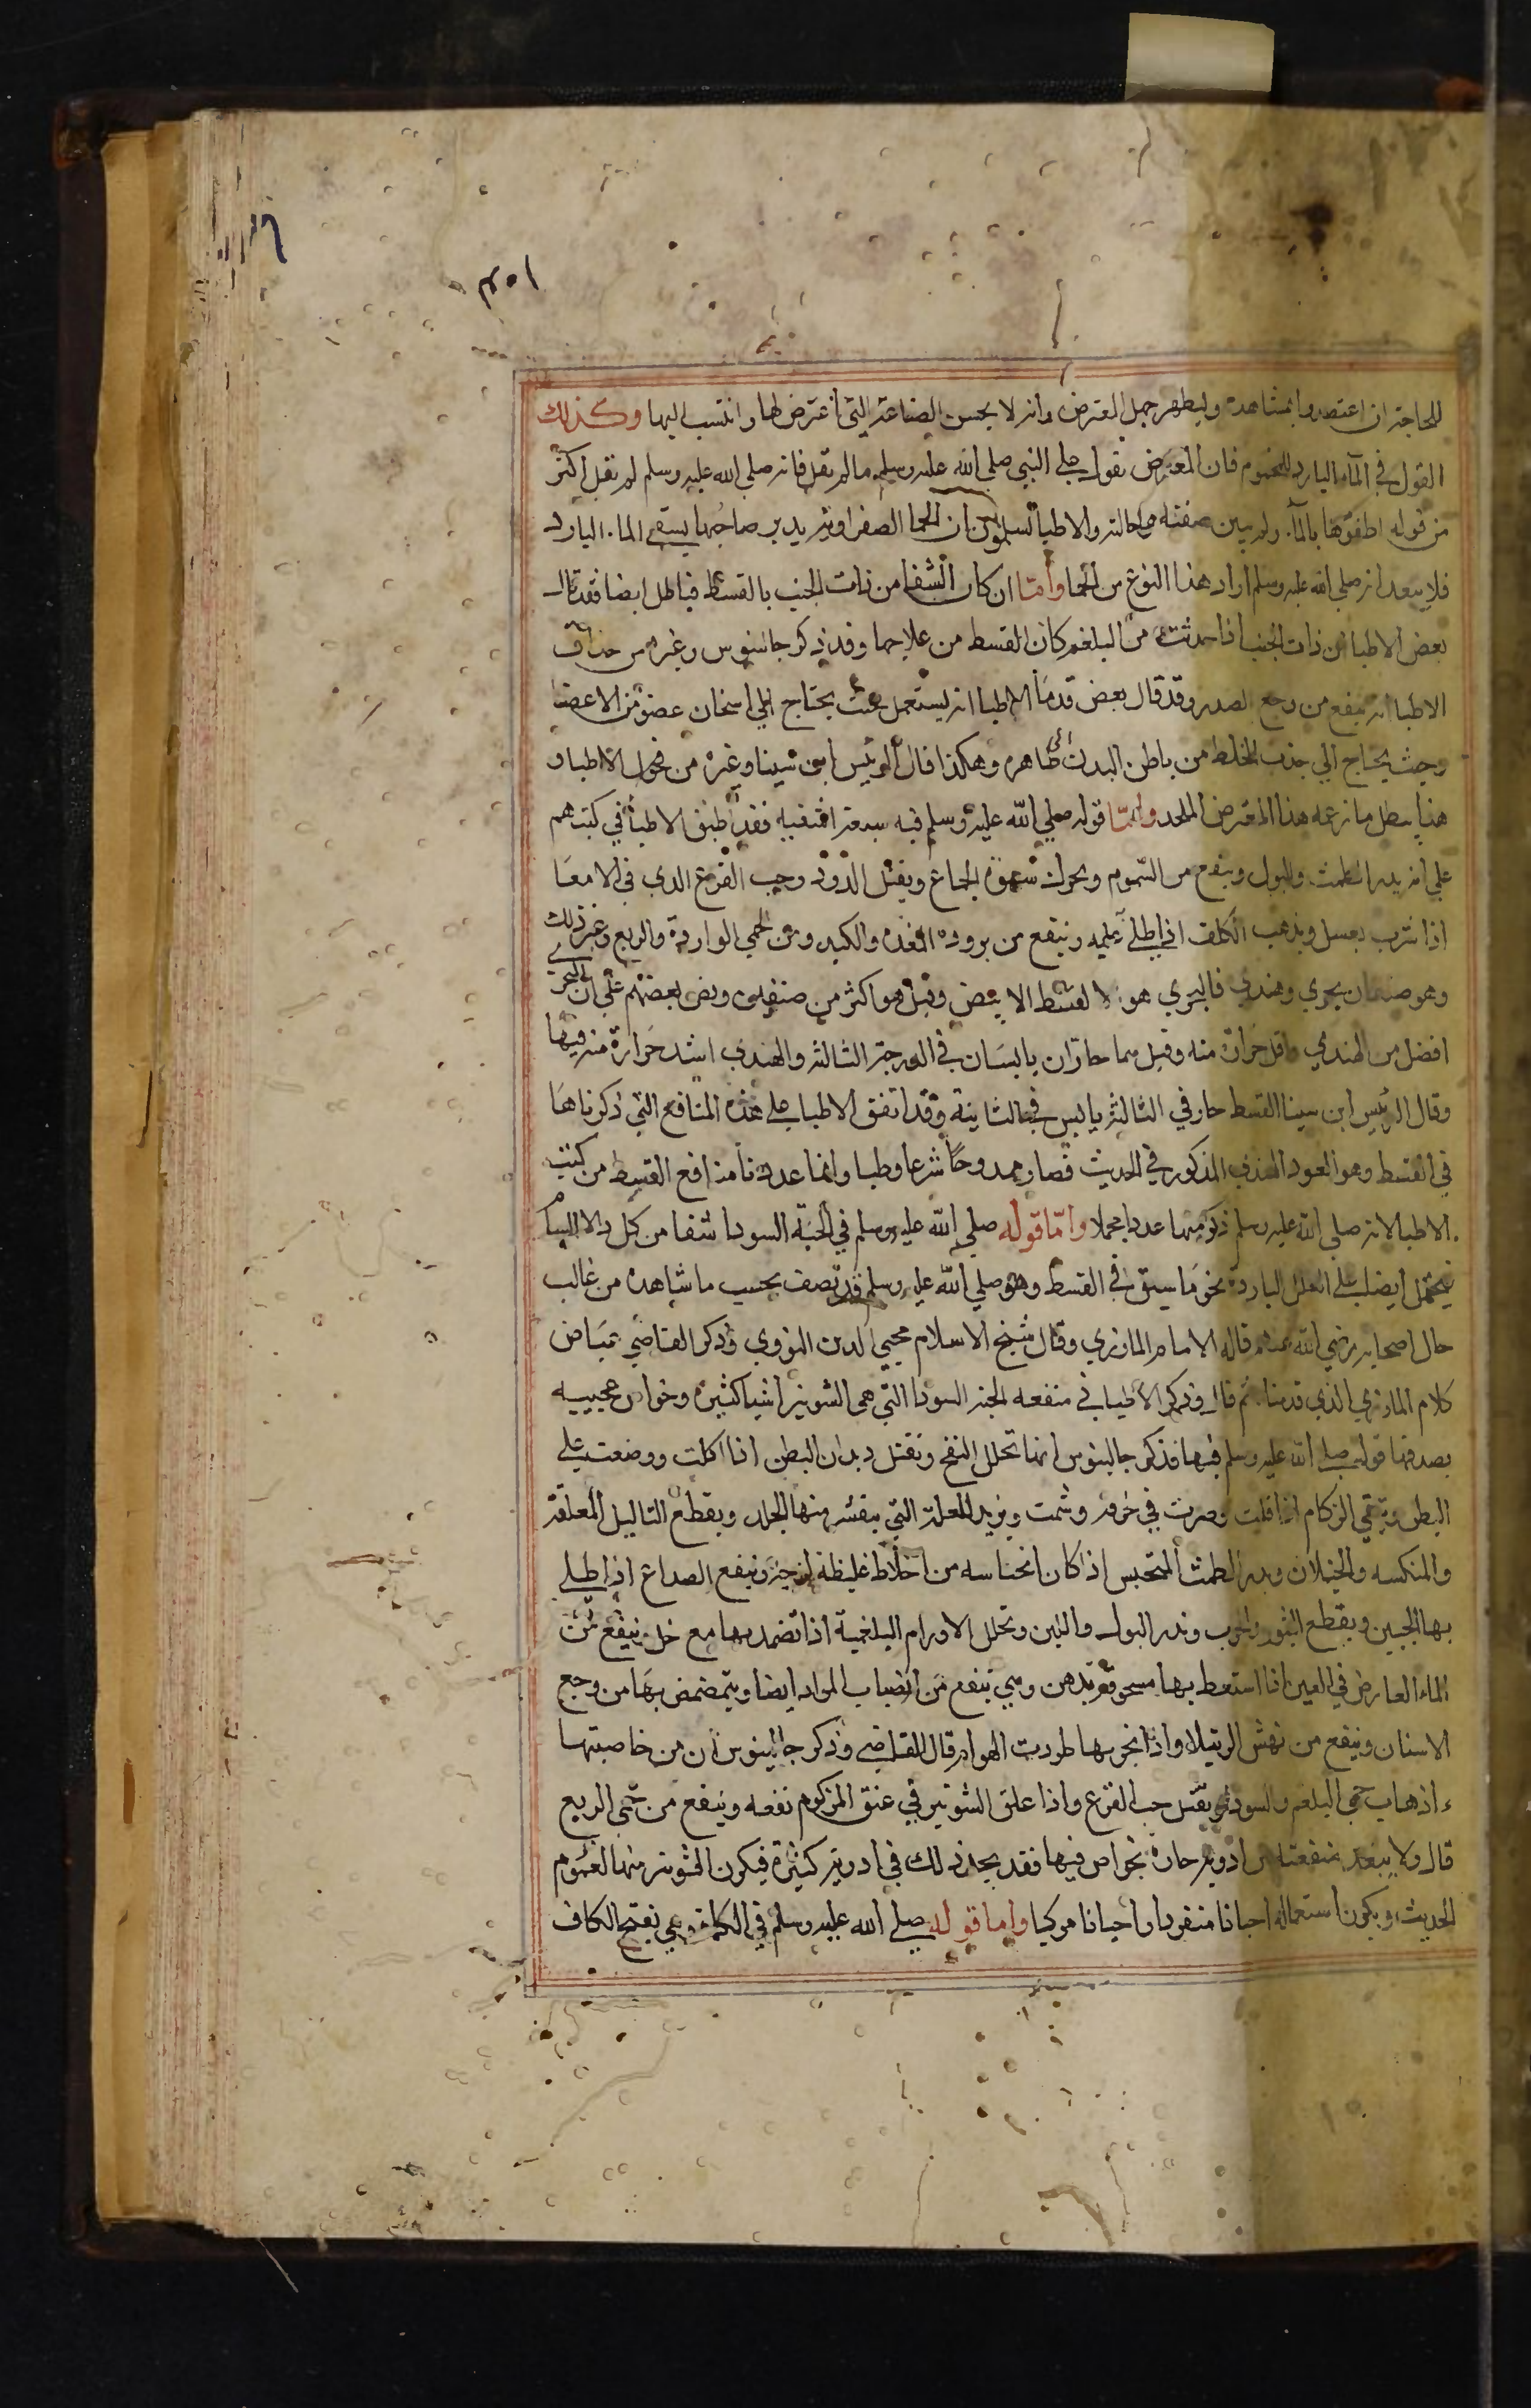 ١٥٣
للحاجة ان اعتضدوا بمشاهدة وليظهر جهل المعترض وانه لا يحسن الصناعة التي اعترض لها وانتسب اليها وكذلك
القول في المآء البارد للمحموم فان المعترض يقول على النبي صلي الله عليه وسلم ما لم يقل فانه صلي الله عليه وسلم لم يقل اكثر
من قوله اطفؤها بالمآء ولم يبين صفته وحالته والاطبا يسلمون ان الحما الصفراوية يدبر صاحبها بسقي الماء البارد
فلا يبعد انه صلي الله عليه وسلم اراد هذا النوع من الحما وأمّا ان كان الشفا من ذات الجنب بالقسط فباطل ايضا فقد قال
بعض الاطبا ان ذات الجنب اذا حدثت من البلغم كان القسط من علاجها وقد ذكر جالنيوس وغيره من حذاق
الاطبا انه ينفع من وجع الصدر وقد قال بعض قدمآ الاطبا انه يستعمل حيث يحتاج الي اسخان عضو من الاعضا
وحيث يحتاج الي جذب الخلط من باطن البدن الى ظاهره وهكذا قال الرئيس ابن سينا وغيره من فحول الاطبا و
هذا يبطل ما زعمه هذا المعترض الملحد وامّا قوله صلي الله عليه وسلم فيه سبعة اشفيه فقد اطبق الاطبا في كتبهم
علي انه يدر الطمث والبول وينفع من السموم ويحرك شهوة الجماع ويقتل الدود وحب القرع الدي في الامعا
اذا شرب بعسل ويذهب الكلف اذا طلي عليه وينفع من بروده المعده والكبد ومن الحمي الواردة والربع وغير ذلك
وهو صنفان بحري وهندي فالبحري هو القسط الابيض وقيل هو اكثر من صنفين ونص بعضهم علي ان البحري
افضل من الهندي واقل حرارة منه وقيل هما حارّان يابسان في الدرجة الثالثة والهندي اشد حرارة منه فيها
وقال الرئيس ابن سينا القسط حار في الثالثة يابس في الثانية وقد اتفق الاطبا على هذه المنافع التي ذكرناها
في القسط وهو العود الهندي المذكور في الحديث فصار ممدوحًا شرعا وطبا وانما عددنا منافع القسط من كتب
الاطبا لانه صلي الله عليه وسلم ذكر منها عددا مجملا وامّا قوله صلي الله عليه وسلم في الحبّة السودا شفا من كل دا الا السام
فيحمل ايضا على العلل الباردة نحو ما سبق في القسط وهو صلي الله عليه وسلم قد يصف بحسب ما شاهده من غالب
حال اصحابه رضي الله عنهم قاله الامام المازري وقال شيخ الاسلام محيي الدين النووي وذكر القاضي عياض
كلام المازري الذي قدمناه ثم قال وذكر الاطبا في منفعه الحبة السودا التي هي الشونيز اشيا كثيره وخواص عجيبه
يصدقها قوله صلي الله عليه وسلم فيها فذكر جالينوس انها تحلل النفخ وتقتل ديدان البطن اذا اكلت ووضعت علي
البطن وتنقي الزكام اذا قليت وصرت في خرقة وشمت وتزيل العلة التي ينقشر منها الجلد ويقطع الثاليل المعلقة
والمنكسه والخيلان وتدر الطمث المتحبس اذا كان انحباسه من اخلاط غليظة لزجة وينفع الصداع اذا طلي
بها الجبين ويقطع البثور والجرب وتدر البول واللبن وتحلل الاورام البلغمية اذا تضمد بها مع خل وينفع من
الماء العارض في العين اذا استعط بها مسحوقة بدهن وهي تنفع من انصباب المواد ايضا ويتمضمض بها من وجع
الاسنان وينفع من نهش الرتيلا واذا بخر بها طردت الهوام قال القاضي وذكر جالينوس ان من خاصيتها
اذهاب حمي البلغم والسودا ويقتل حب القرع واذا علق الشونيز في عنق المزكوم نفعه وينفع من حمي الربع
قال ولا يبعد منفعته من ادوية حارة بخواص فيها فقد يجد ذلك في ادوية كثيرة فيكون الشونيز منها لعموم
الحديث ويكون استعماله احيانا منفردا واحيانا مركبا واما قوله صلي الله عليه وسلم في الكمأة وهي بفتح الكاف